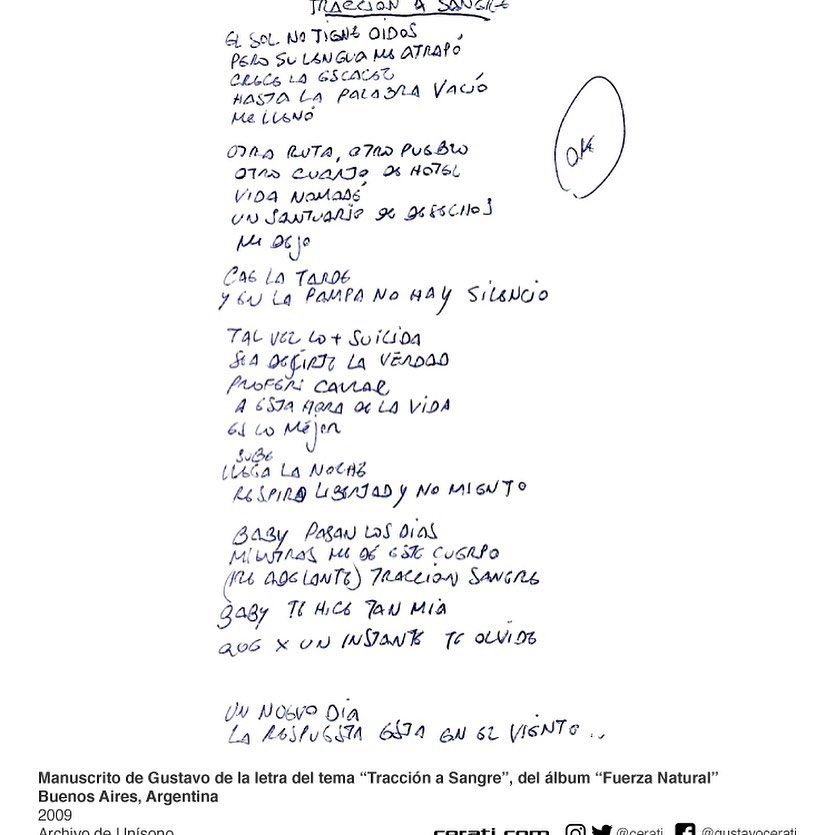 TRACCION A SANGRE
EL SOL NO TIENE OIDOS
PERO SU LENGUA ME ATRAPÓ
CRECE LA ESCACEZ
HASTA LA PALABRA VACIÓ
ME LLENÓ
OTRA RUTA, OTRO PUEBLO
OTRO CUARTO DE HOTEL
VIDA NOMADE
UN SANTUARIO DE DESECHOS
ME DEJO
CAE LA TARDE
Y EN LA PAMPA NO HAY SILENCIO
OK
TAL VEZ LO + SUICIDA
SEA DECIRTE LA VERDAD
PREFERI CALLAR
A ESTA HORA DE LA VIDA
ES LO MEJOR
SUBE
LLEGA LA NOCHE
RESPIRO LIBERTAD Y NO MIENTO
BABY PASAN LOS DIAS
MIENTRAS ME DÉ ESTE CUERPO
(IRE ADELANTE) TRACCION SANGRE
BABY TE HICE TAN MIA
QUE X UN INSTANTE TE OLVIDE
UN NUEVO DIA
LA RESPUESTA ESTA EN EL VIENTO...
Manuscrito de Gustavo de la letra del tema “Tracción a Sangre”, del álbum “Fuerza Natural”
Buenos Aires, Argentina
2009
Archivo de Unísono
cerati.com @cerati @gustavocerati